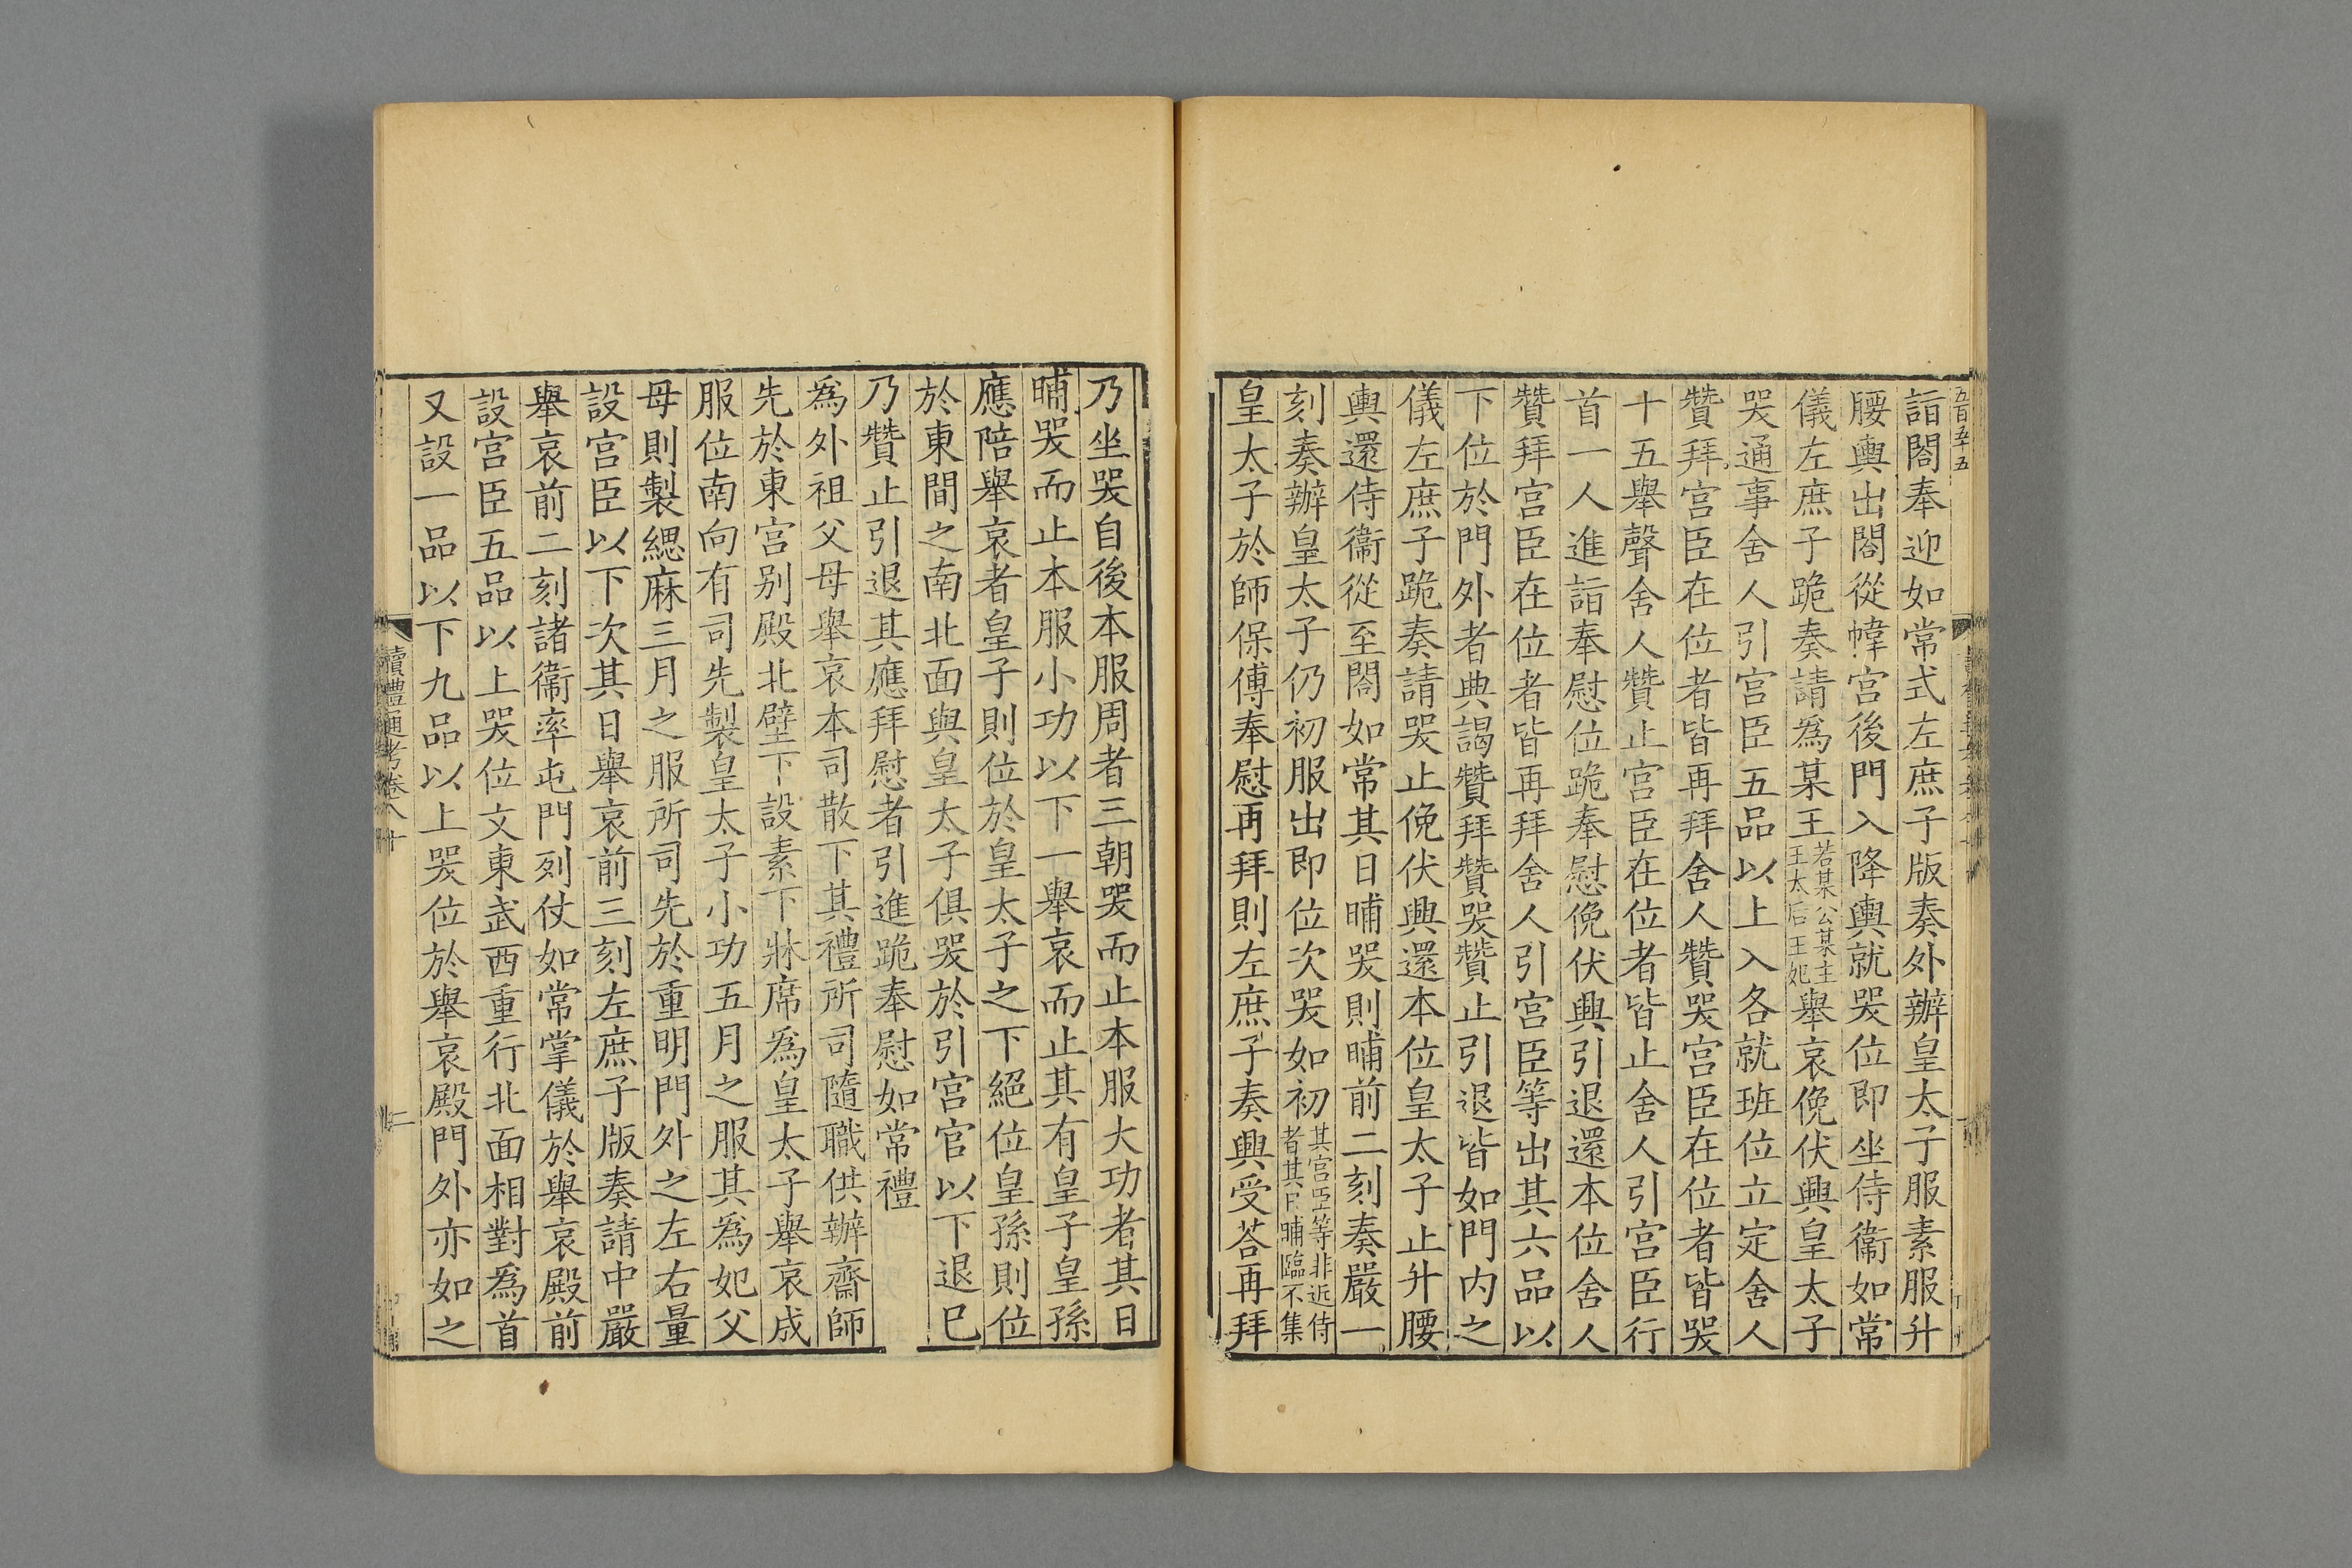 五百五十五
詣閤奉迎如常式左庶子版奏外辦皇太子服素服升
腰輿出閤從幃宮後門入降輿就哭位即坐侍衞如常
儀左庶子跪奏請為某王若某公某主王太后王妃舉哀俛伏興皇太子
哭通事舍人引宮臣五品以上入各就班位立定舍人
贊拜宮臣在位者皆再拜舍人贊哭宮臣在位者皆哭
十五舉聲舍人贊止宮臣在位者皆止舍人引宮臣行
首一人進詣奉慰位跪奉慰俛伏興引退還本位舍人
贊拜宮臣在位者皆再拜舍人引宮臣等出其六品以
下位於門外者典謁贊拜贊哭贊止引退皆如門內之
儀左庶子跪奏請哭止俛伏興還本位皇太子止升腰
輿還侍衞從至閤如常其日晡哭則晡前二刻奏嚴一
刻奏辦皇太子仍初服出即位次哭如初其宮臣等非近侍者其日晡臨不集
皇太子於師保傅奉慰再拜則左庶子奏興受荅再拜
乃坐哭自後本服周者三朝哭而止本服大功者其日
晡哭而止本服小功以下一舉哀而止其有皇子皇孫
應陪舉哀者皇子則位於皇太子之下絕位皇孫則位
於東間之南北面與皇太子俱哭於引宮官以下退已
乃贊止引退其應拜慰者引進跪奉慰如常禮
為外祖父母舉哀本司散下其禮所司隨職供辦齋師
先於東宮別殿北壁下設素下牀席為皇太子舉哀成
服位南向有司先製皇太子小功五月之服其為妃父
母則製緦麻三月之服所司先於重明門外之左右量
設宮臣以下次其日舉哀前三刻左庶子版奏請中嚴
舉哀前二刻諸衞率屯門列仗如常掌儀於舉哀殿前
設宮臣五品以上哭位文東武西重行北面相對為首
又設一品以下九品以上哭位於舉哀殿門外亦如之
讀禮通考卷八十
二